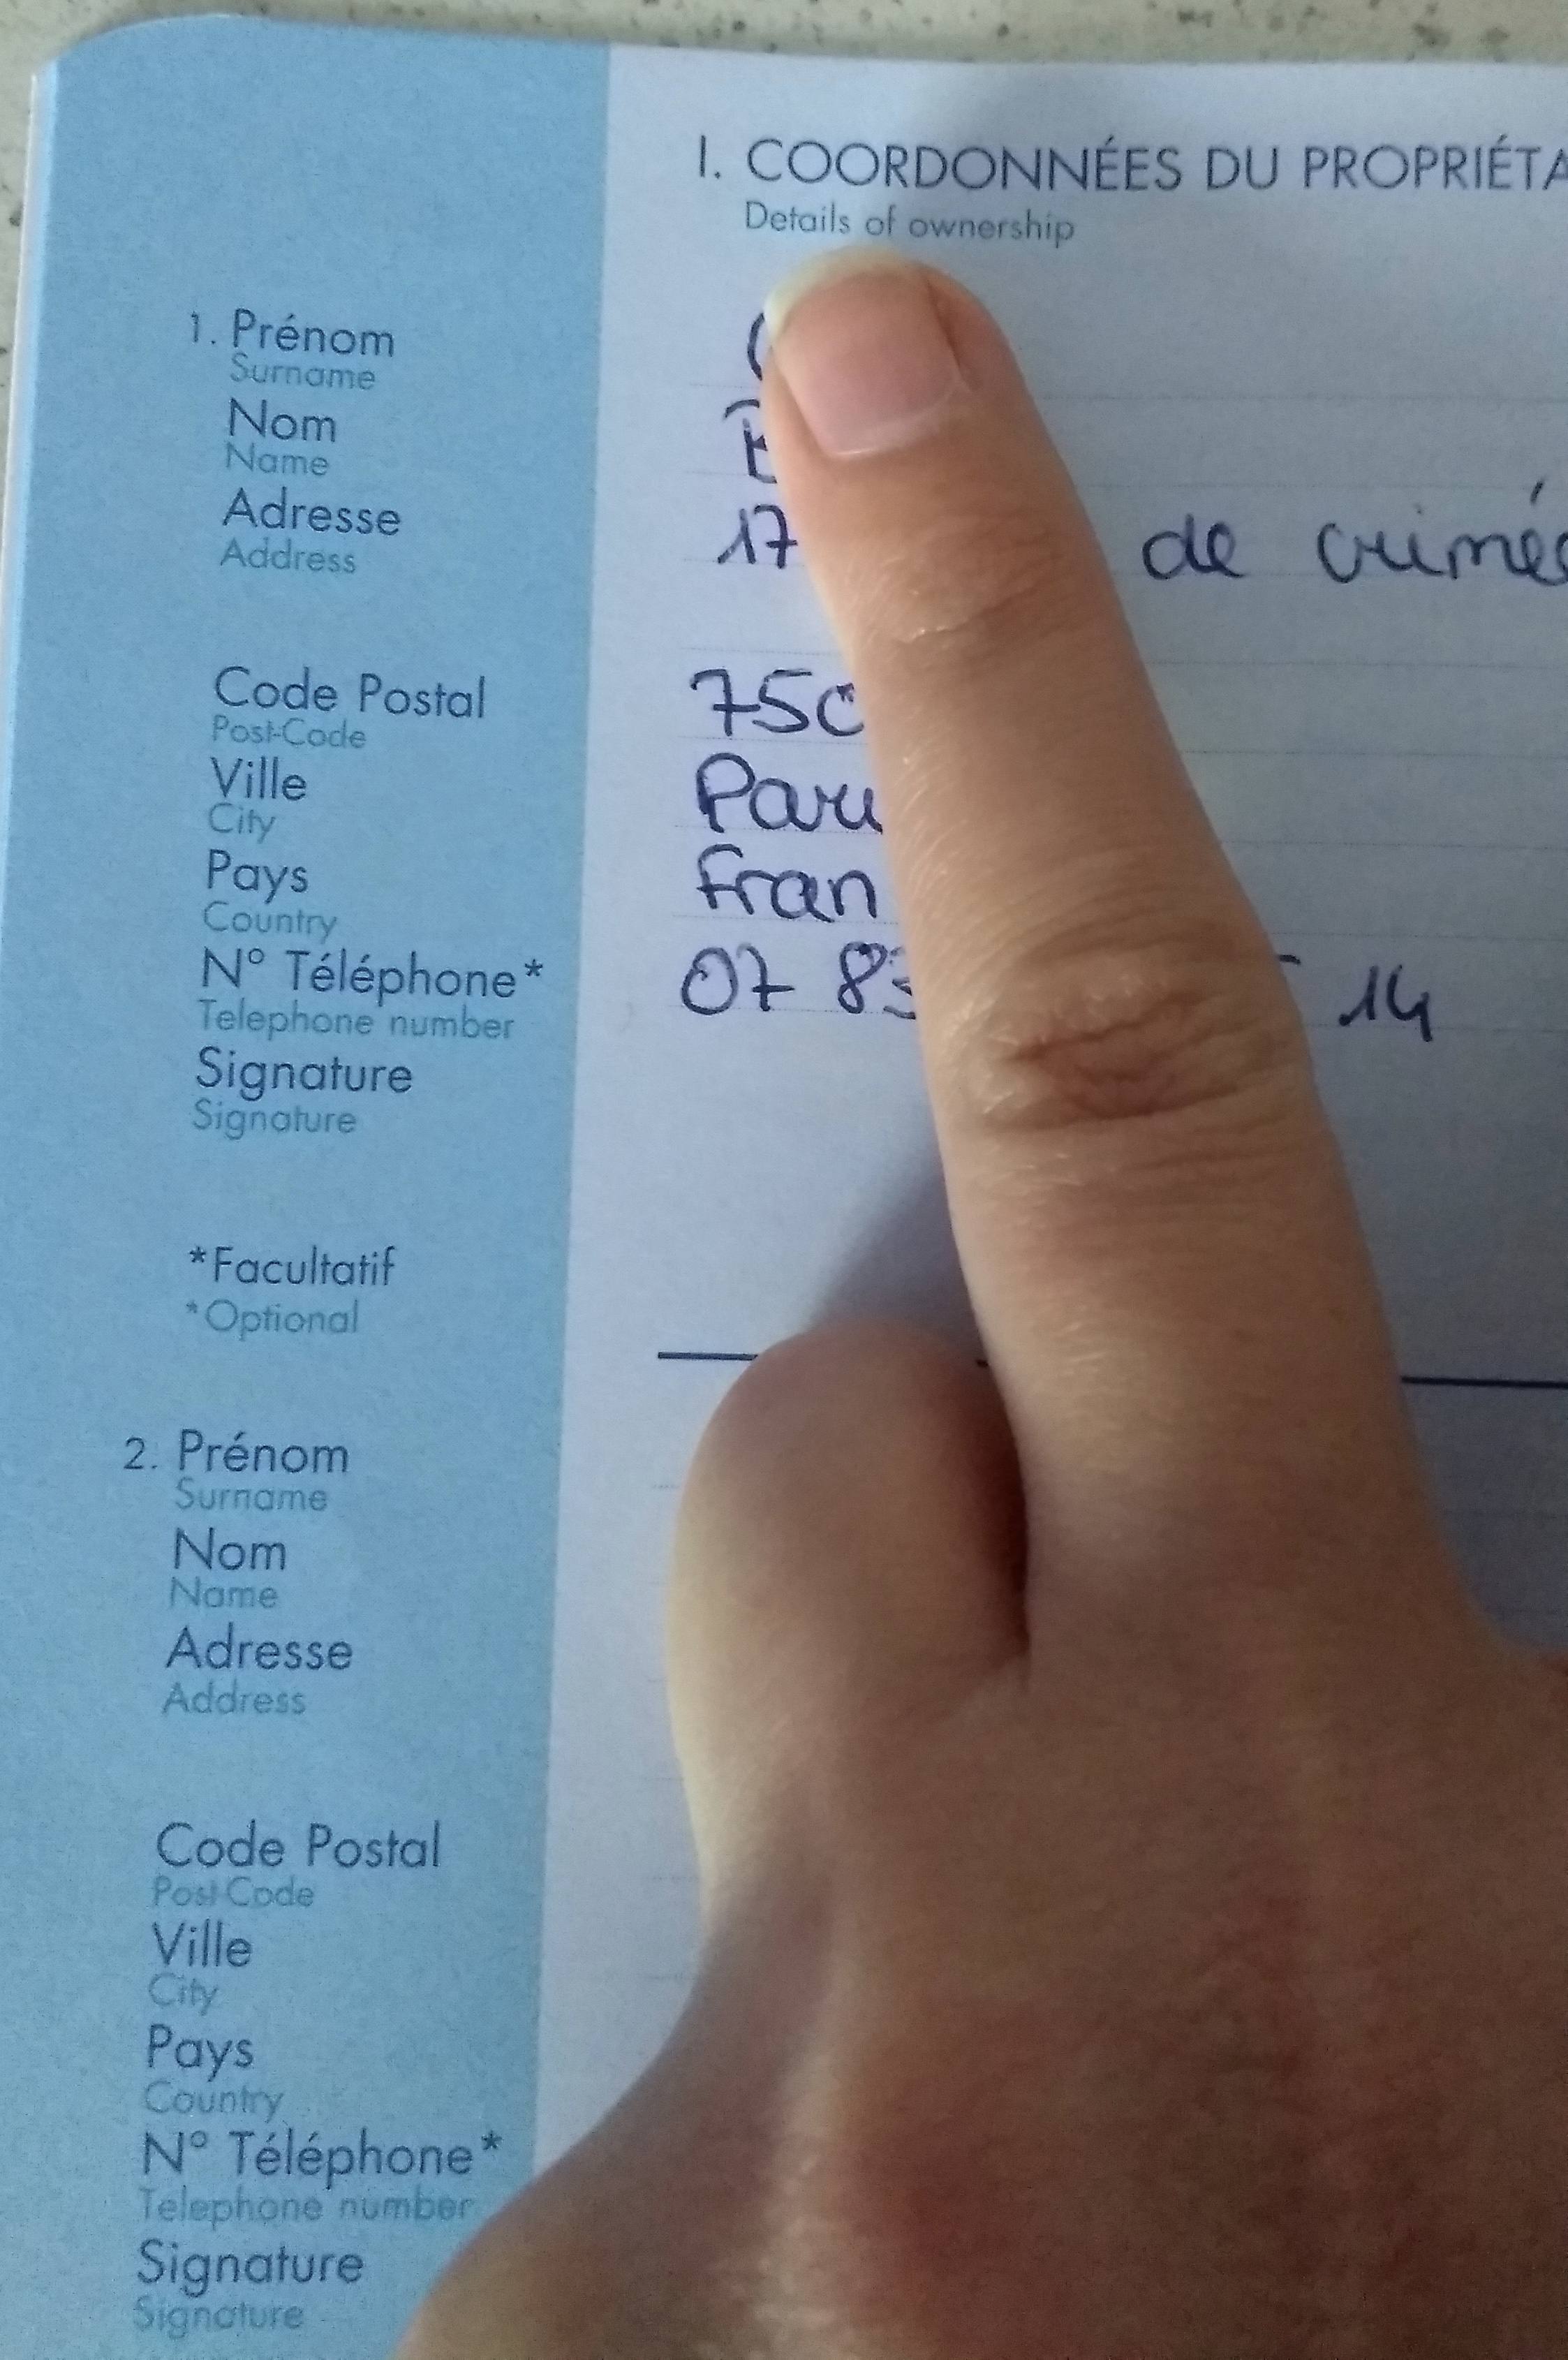 I. COORDONNÉES DU PROPRIÉTA
Details of ownership
1. Prénom
Surname
Nom
Name
Adresse 17 de crimée
Address
Code Postal 750
Post-Code
Ville
City
Pays Fran
Country
N° Téléphone* 07 83 14
Telephone number
Signature
Signature
*Facultatif
*Optional
2. Prénom
Surname
Nom
Name
Adresse
Address
Code Postal
Post-Code
Ville
City
Pays
Country
N° Téléphone*
Telephone number
Signature
Signature